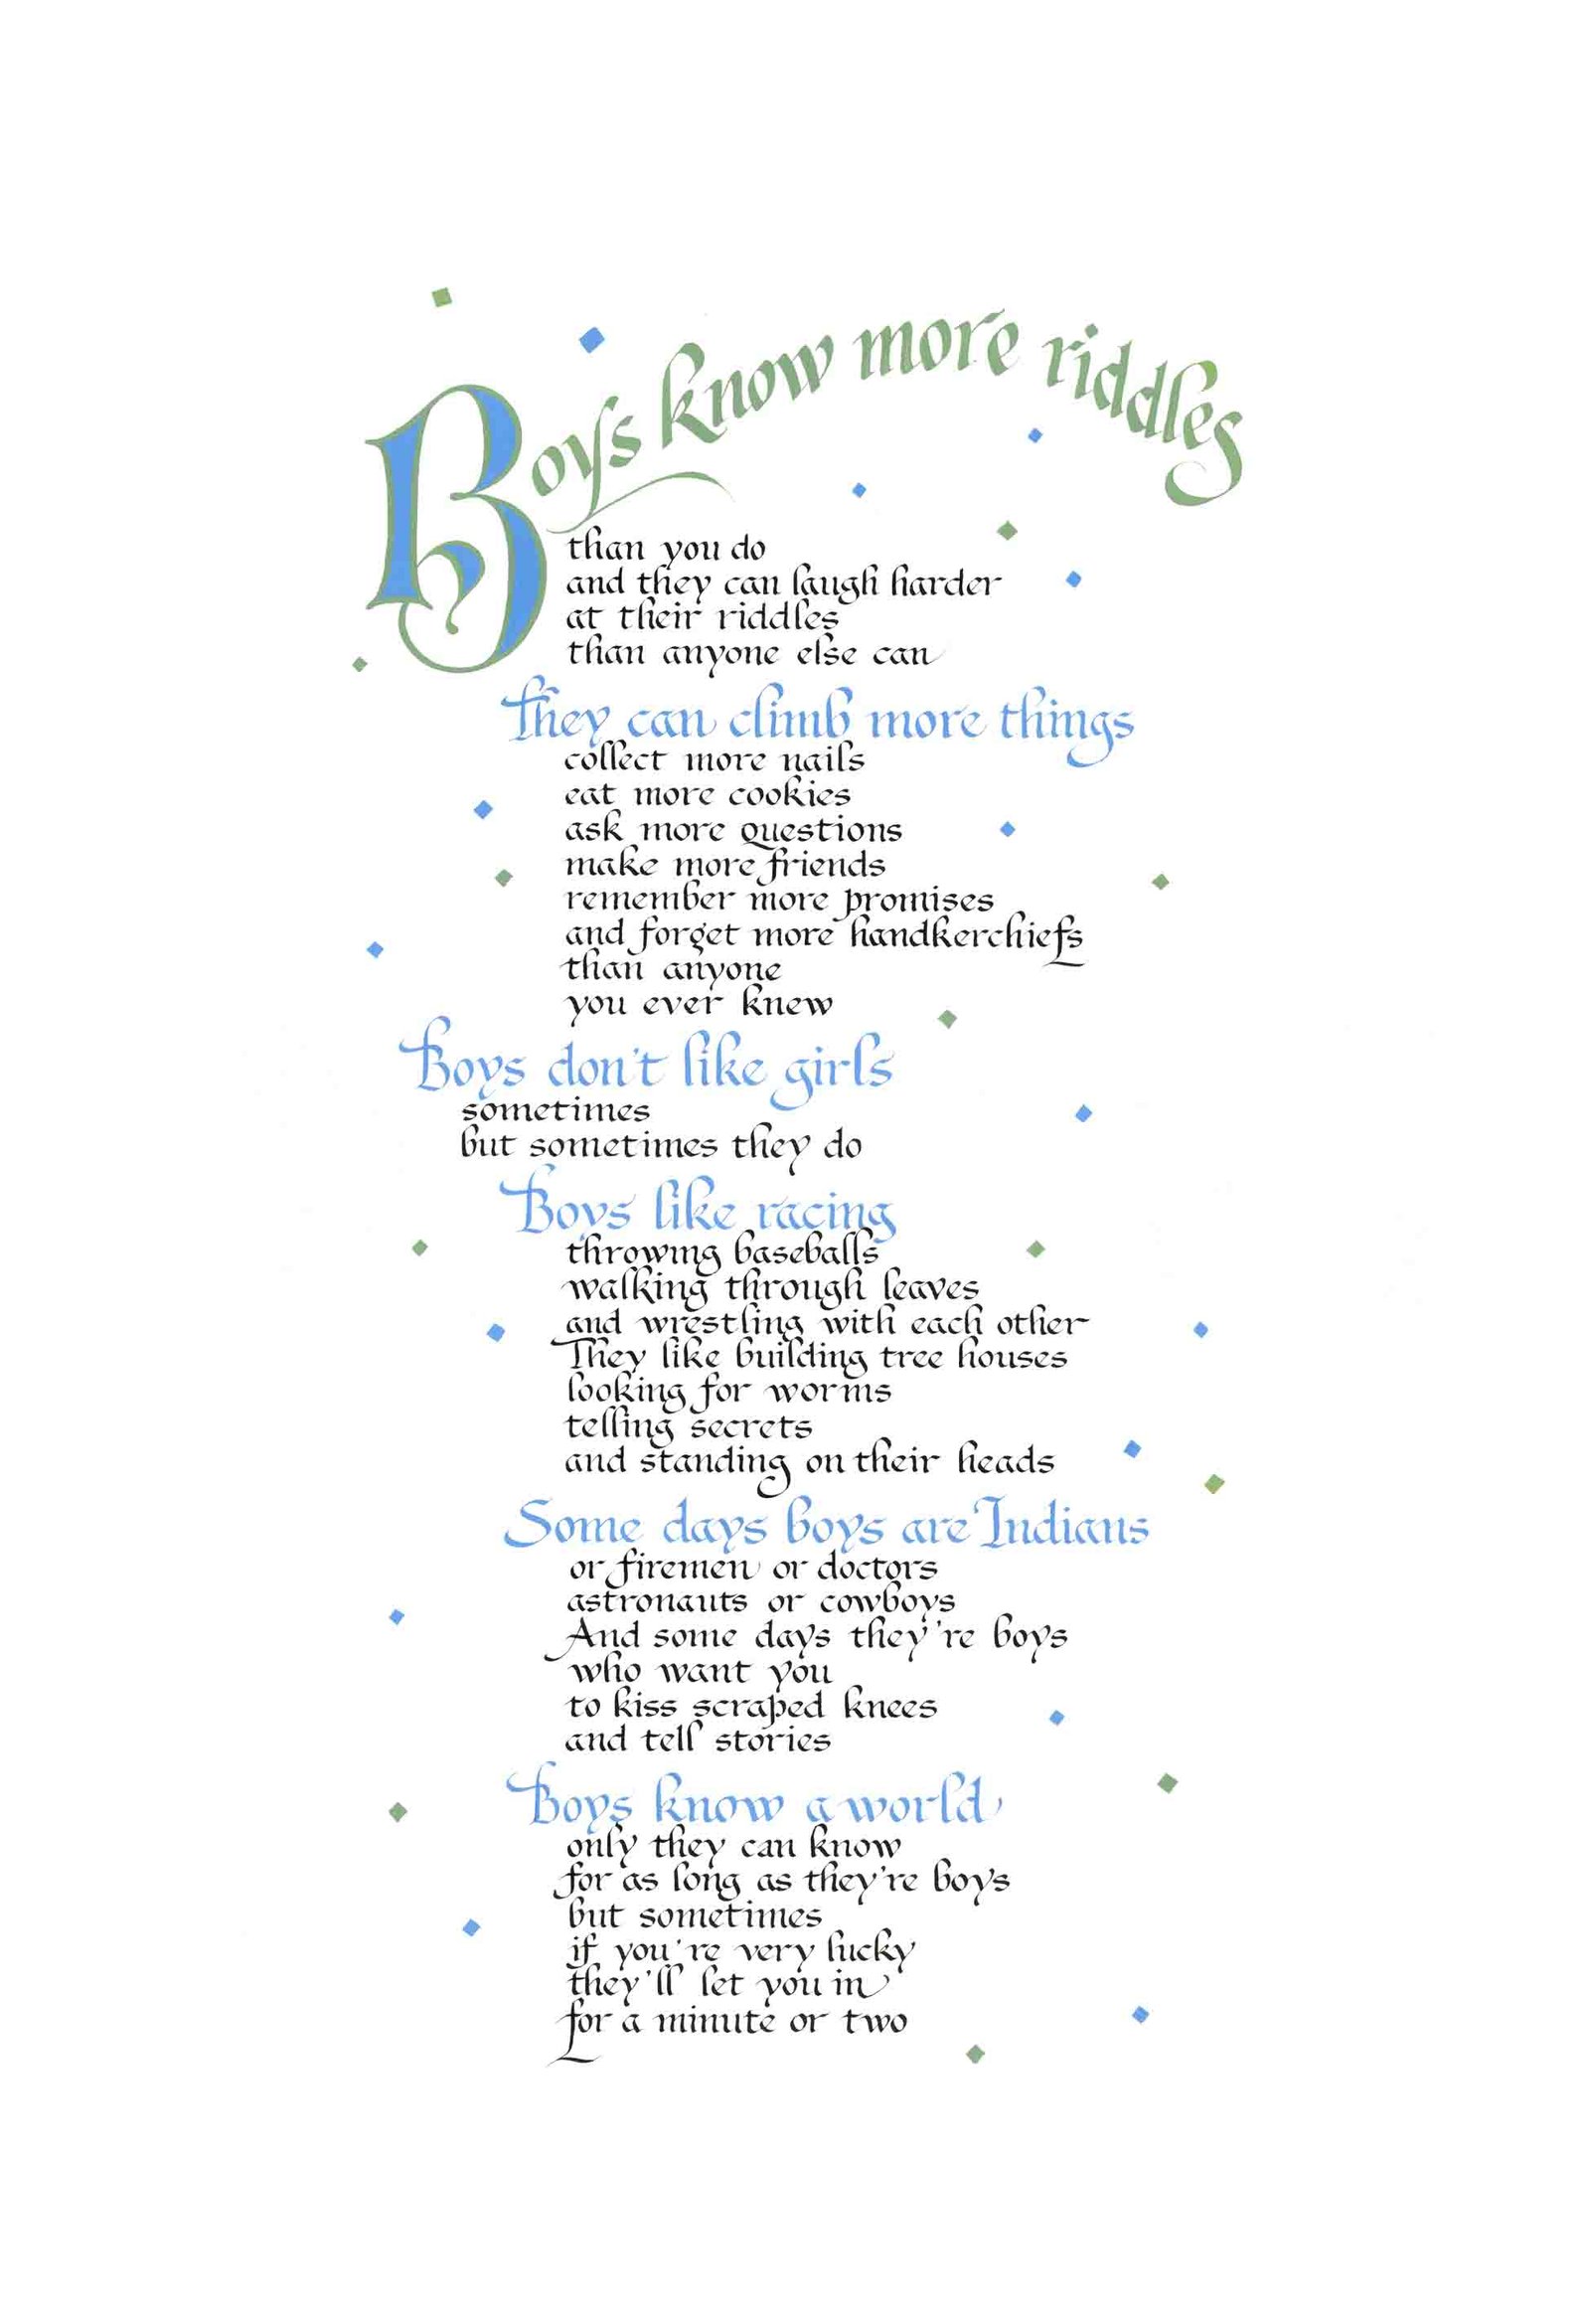 Boys know more riddles
than you do
and they can laugh harder
at their riddles
than anyone else can
They can climb more things
collect more nails
eat more cookies
ask more questions
make more friends
remember more promises
and forget more handkerchiefs
than anyone
you ever knew
Boys don't like girls
sometimes
but sometimes they do
Boys like racing
throwing baseballs
walking through leaves
and wrestling with each other
They like building tree houses
looking for worms
telling secrets
and standing on their heads
Some days boys are Indians
or firemen or doctors
astronauts or cowboys
And some days they're boys
who want you
to kiss scraped knees
and tell stories
Boys know a world
only they can know
for as long as they're boys
but sometimes
if you're very lucky
they'll let you in
for a minute or two